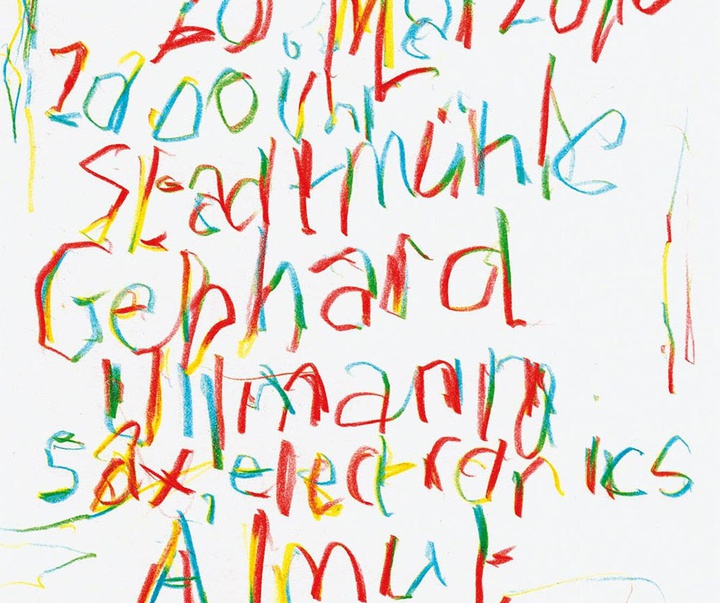 20. Mai 2016
2000 Uhr
Stadtmühle
Gebhard
Ullmann
sax, electronics
Almut